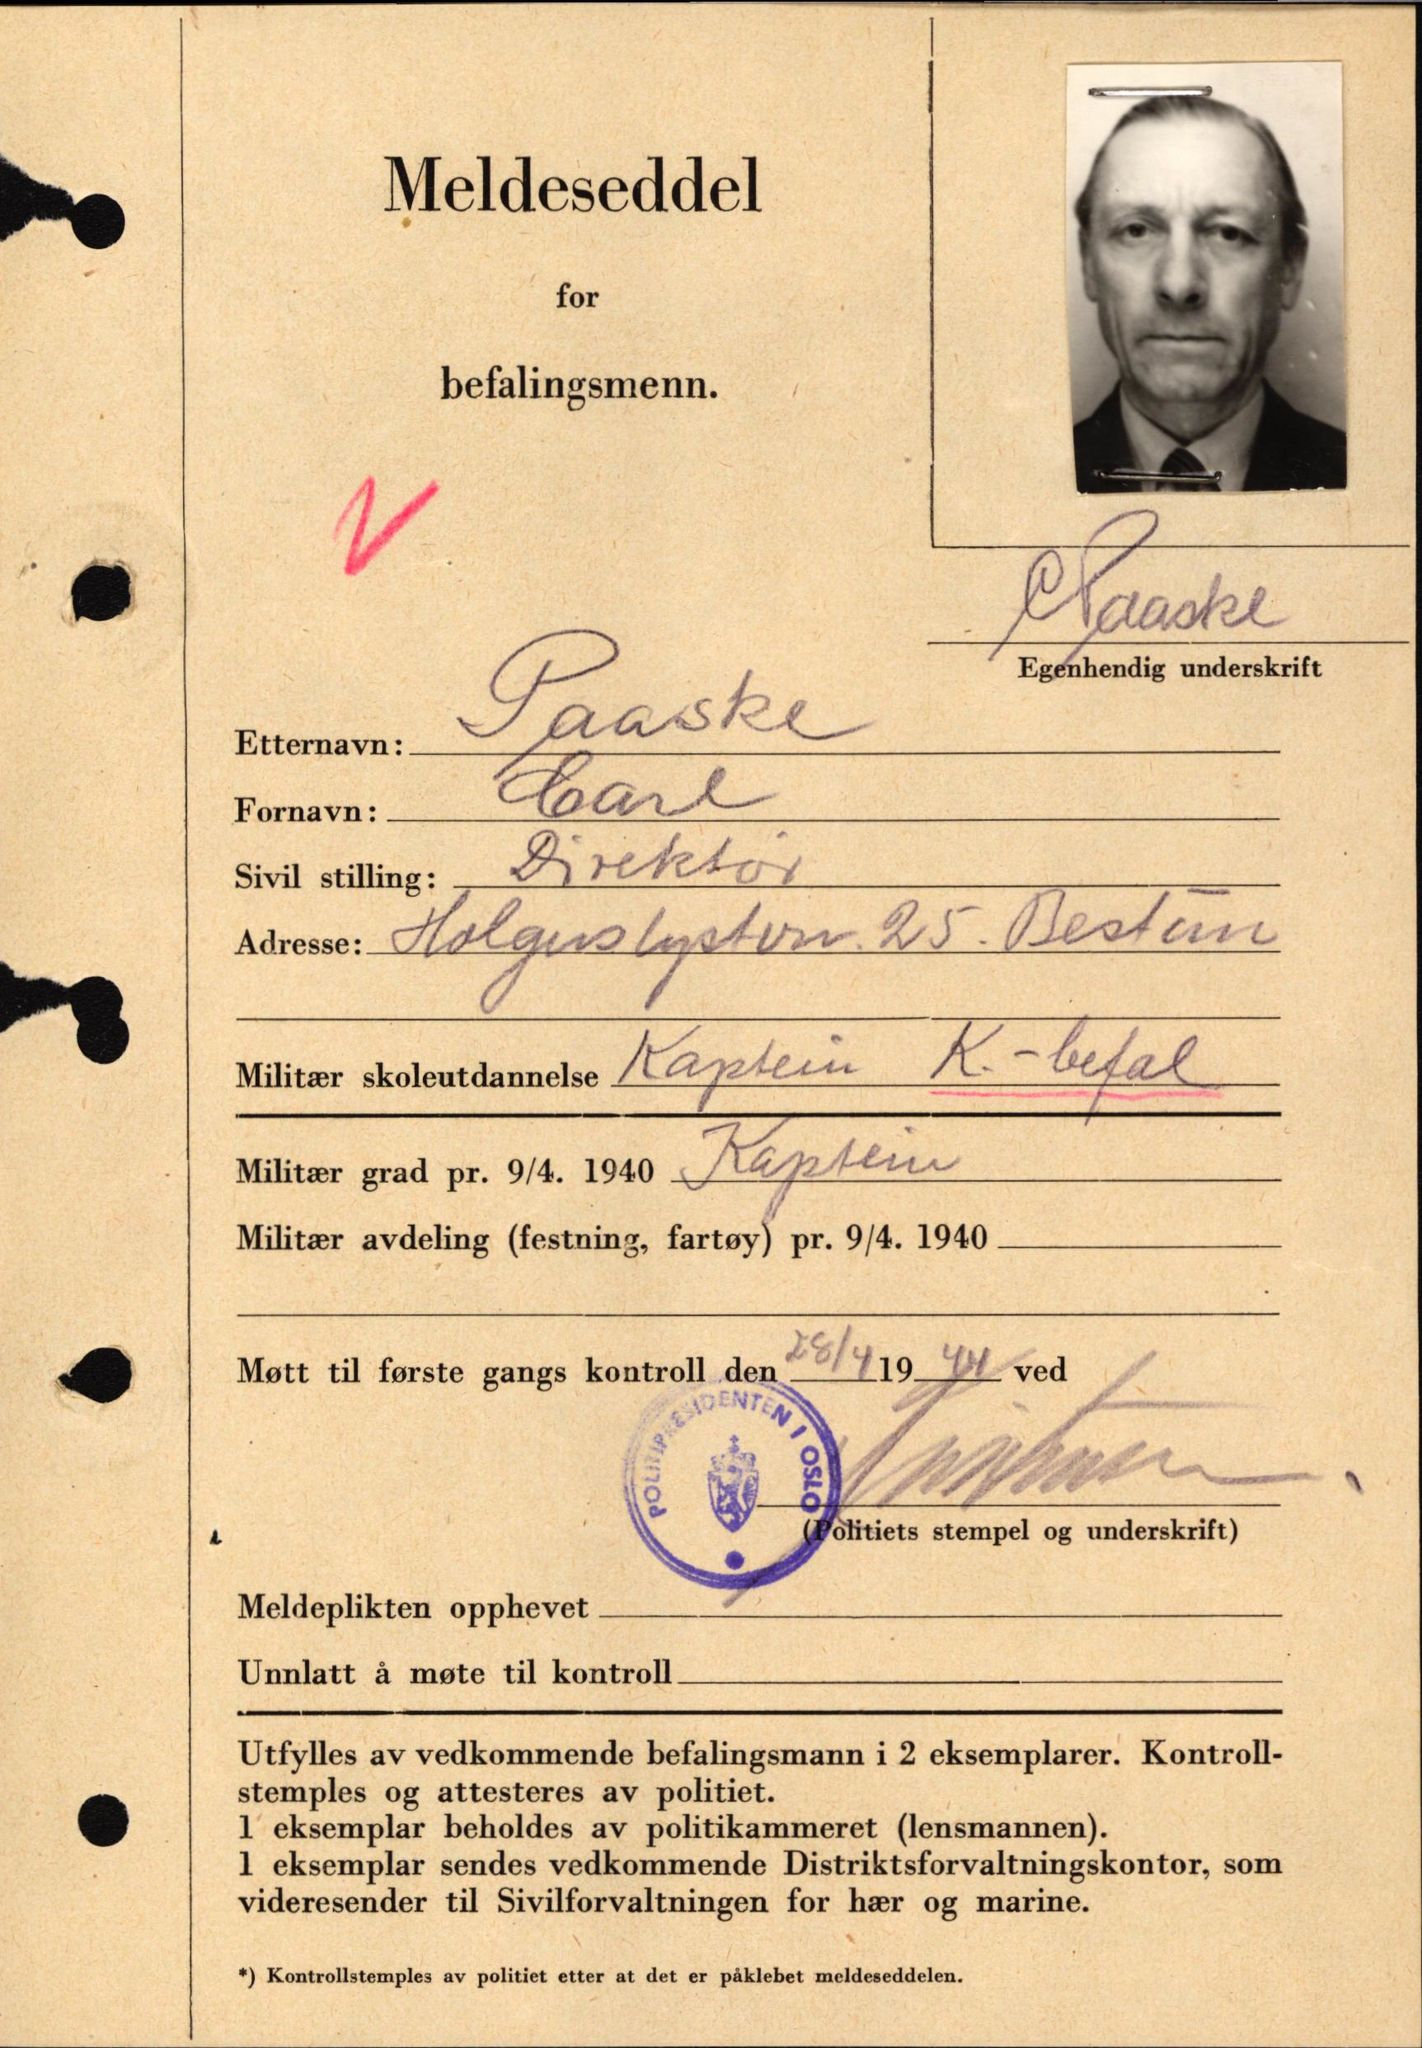 Meldeseddel
for
befalingsmenn.
C Paaske
Egenhendig underskrift
Etternavn: Paaske
Fornavn: Carl
Sivil stilling: Direktør
Adresse: 25. Bestun
Militær skoleutdannelse Kaptein K.-befal
Militær grad pr. 9/4. 1940 Kaptein
Militær avdeling (festning, fartøy) pr. 9/4. 1940
Møtt til første gangs kontroll den 28/4 19 44 ved
POLITIPRESIDENTEN I OSLO
(Politiets stempel og underskrift)
Meldeplikten opphevet
Unnlatt å møte til kontroll
Utfylles av vedkommende befalingsmann i 2 eksemplarer. Kontroll-
stemples og attesteres av politiet.
1 eksemplar beholdes av politikammeret (lensmannen).
1 eksemplar sendes vedkommende Distriktsforvaltningskontor, som
videresender til Sivilforvaltningen for hær og marine.
*) Kontrollstemples av politiet etter at det er påklebet meldeseddelen.